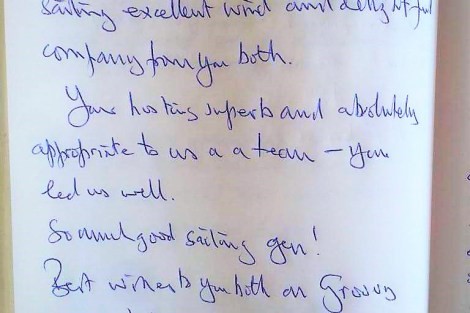 sailing excellent wind and delightful
company from you both.
Your hosting superb and absolutely
appropriate to us a a team – you
led us well.
So much good sailing gen!
Best wishes to you both on Groovy